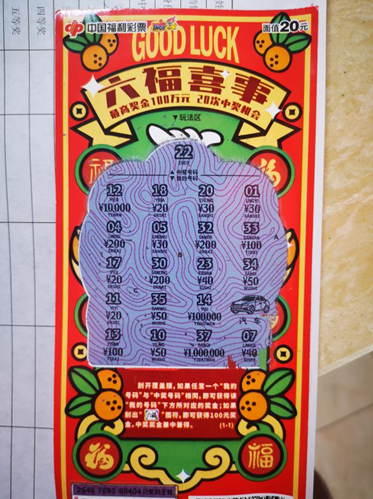 四等奖
五等奖
中国福利彩票 刮刮乐
面值20元
GOOD LUCK
六福喜事
最高奖金100万元 20次中奖机会
▼玩法区
22
▲中奖号码
▼我的号码
12 18 20 01
¥10,000 ¥20 ¥30 ¥30
04 05 32 33
¥200 ¥30 ¥200 ¥100
17 30 23 34
¥20 ¥200 ¥40 ¥50
11 35 14
¥20 ¥50 ¥100000 汽车
13 10 37 07
¥100 ¥50 ¥1,000,000 ¥40
刮开覆盖膜，如果任意一个“我的
号码”与“中奖号码”相同，即可获得该
“我的号码”下方所对应的奖金；如果
刮出“ ”图符，即可获得100元奖
金。中奖奖金兼中兼得。
(1-1)
福
福
福
福